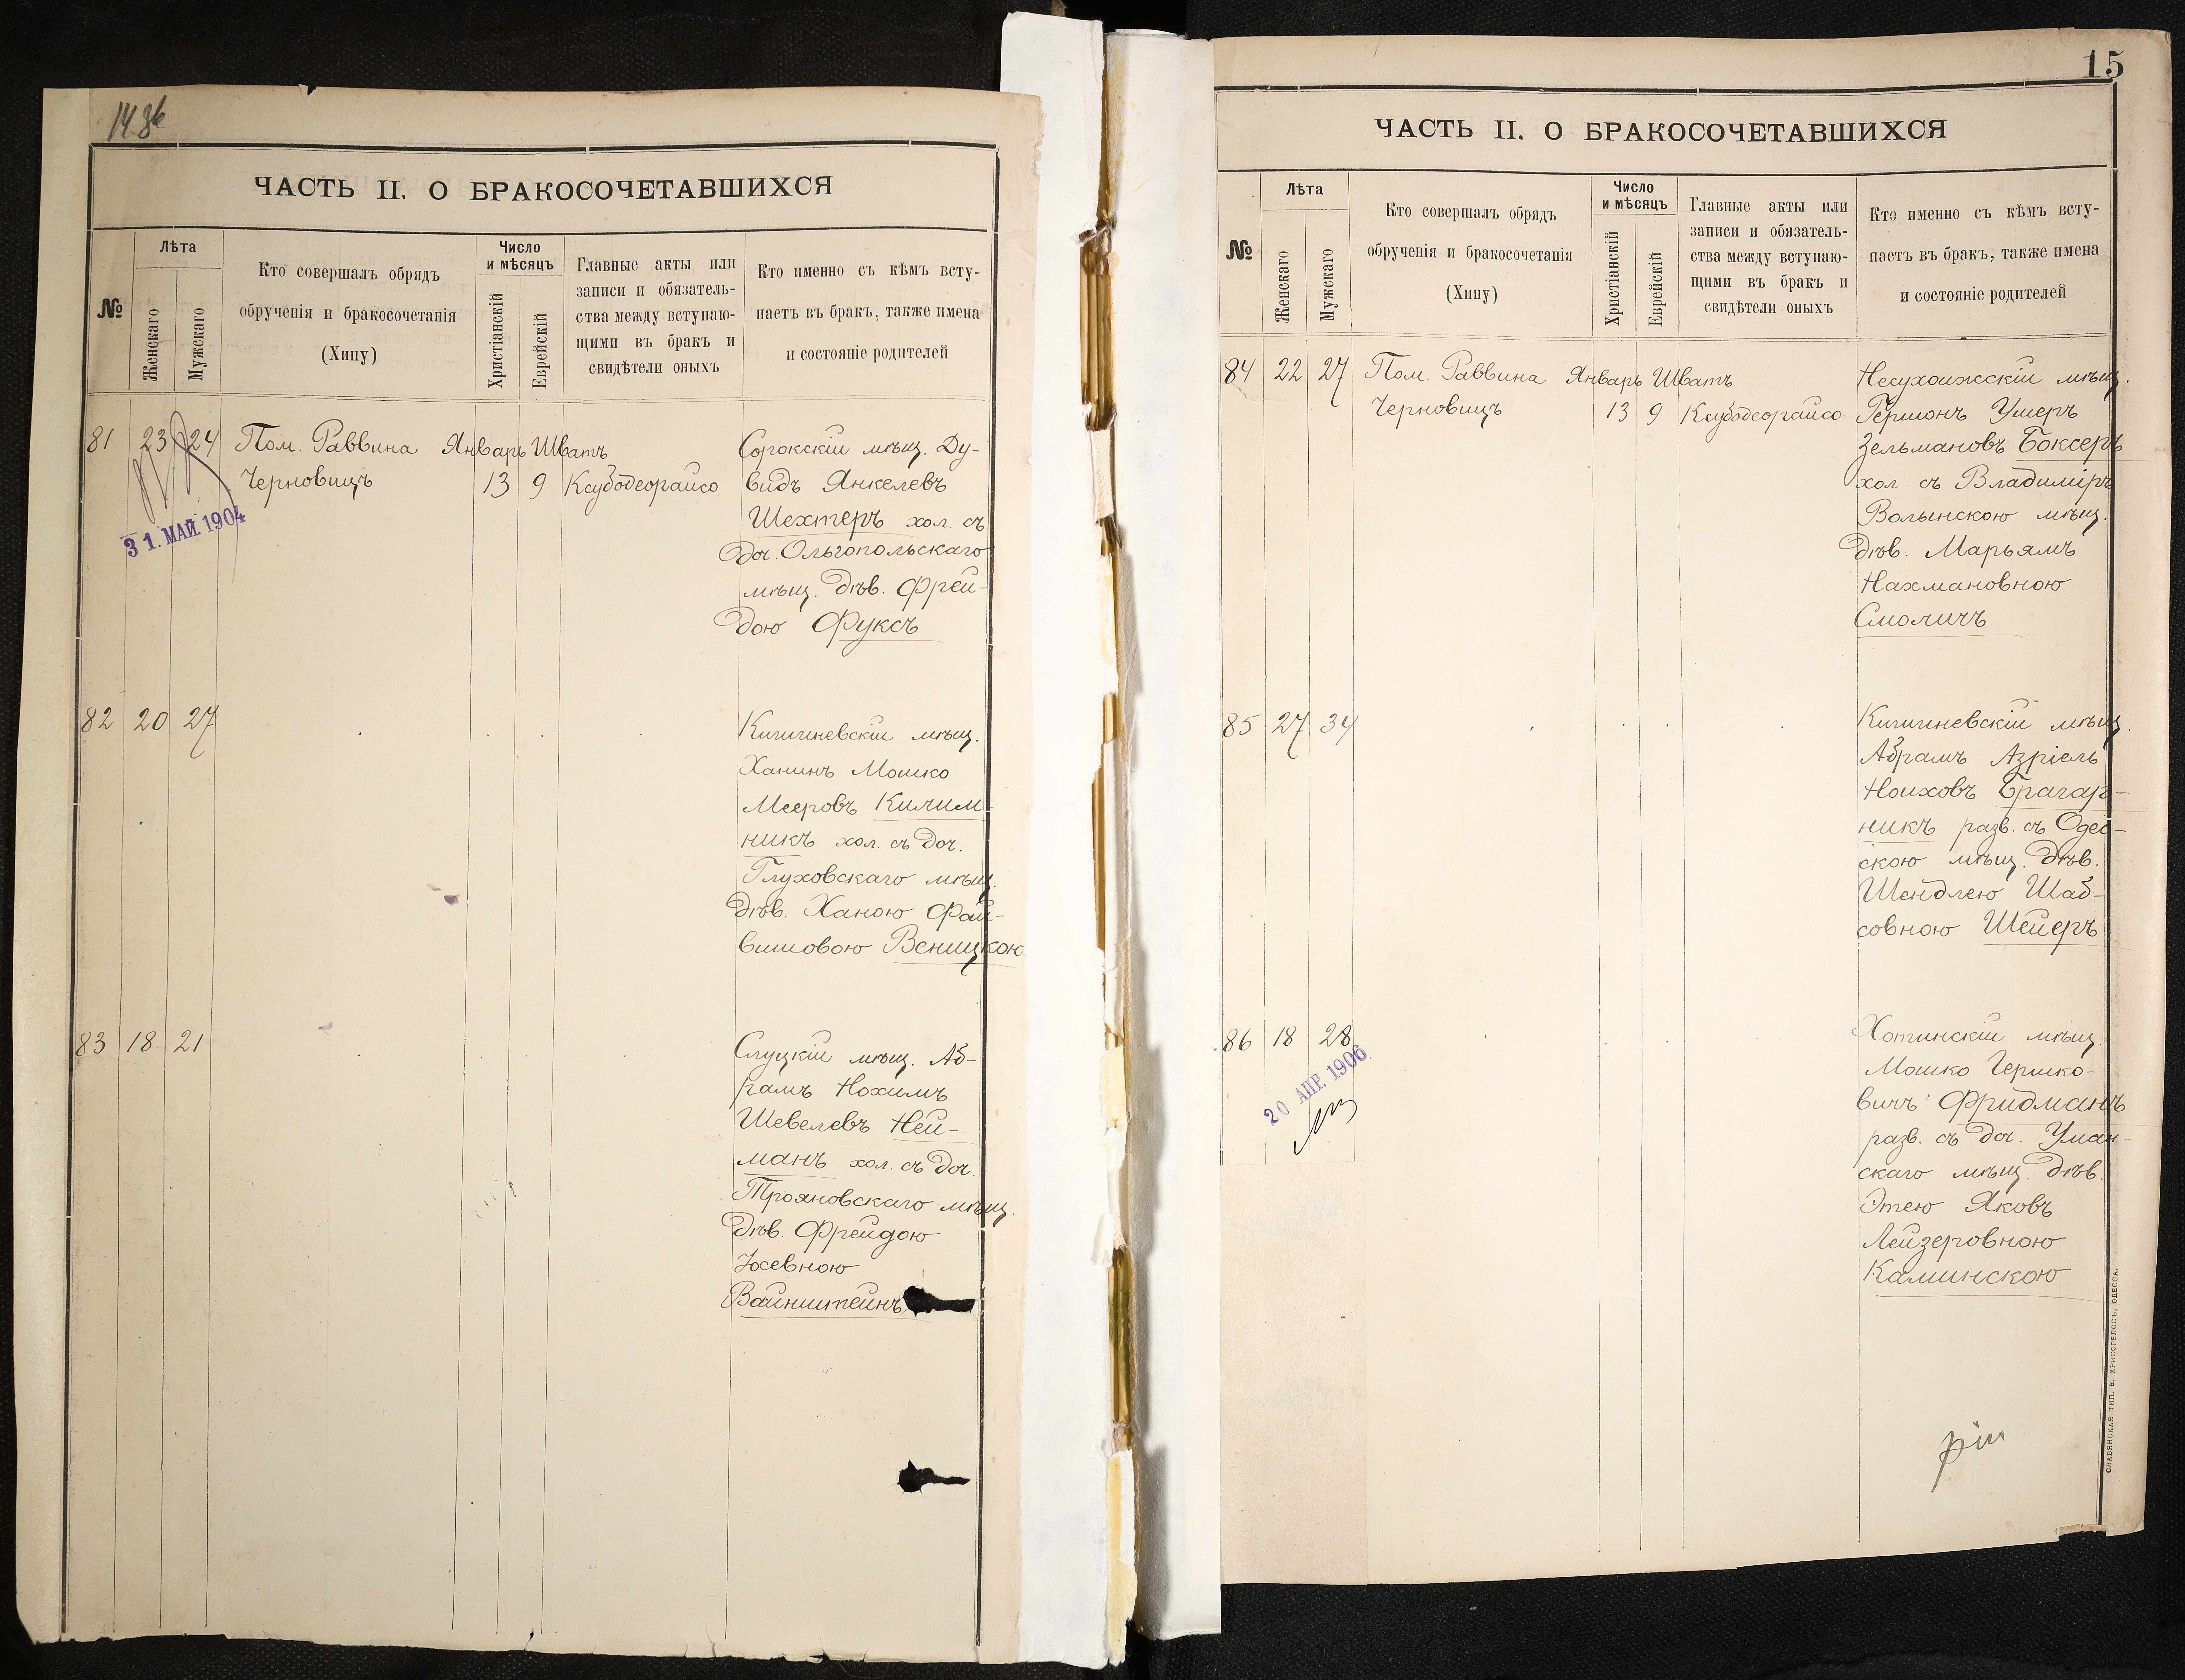 ЧАСТЬ II. О БРАКОСОЧЕТАВШИХСЯ
№
Лѣта
Женскаго
Мужскаго
Кто совершалъ обрядъ
обрученія и бракосочетанія
(Хипу)
Число
и мѣсяцъ
Христіанскій
Еврейскій
Главные акты или
записи и обязатель-
ства между вступаю-
щими въ бракъ и
свидѣтели оныхъ
Кто именно съ кѣмъ всту-
паетъ въ бракъ, также имена
и состояніе родителей
81 23 24 Пом. Раввина Январь Шватъ
Черновицъ 13 9 Ксубодеорайсо
31. МАЙ. 1904
Сорокскій мѣщ. Ду-
видъ Янкелевъ
Шехтеръ хол. съ
доч. Ольгопольскаго
мѣщ. дѣв. Фрей-
дою Фуксъ
82 20 27
Кишиневскій мѣщ.
Ханинъ Мошко
Мееровъ Килим-
никъ хол. съ доч.
Глуховскаго мѣщ.
дѣв. Ханою Фай-
вишовою Веницкою
83 18 21
Слуцкій мѣщ. Аб-
рамъ Нохимъ
Шевелевъ Ней-
манъ хол. съ доч.
Трояновскаго мѣщ.
дѣв. Фрейдою
Іосевною
Вайнштейнъ
15
ЧАСТЬ II. О БРАКОСОЧЕТАВШИХСЯ
№
Лѣта
Женскаго
Мужскаго
Кто совершалъ обрядъ
обрученія и бракосочетанія
(Хипу)
Число
и мѣсяцъ
Христіанскій
Еврейскій
Главные акты или
записи и обязатель-
ства между вступаю-
щими въ бракъ и
свидѣтели оныхъ
Кто именно съ кѣмъ всту-
паетъ въ бракъ, также имена
и состояніе родителей
84 22 27 Пом. Раввина Январь Шватъ
Черновицъ 13 9 Ксубодеорайсо
Несухоижскій мѣщ.
Гершонъ Ушеръ
Зельмановъ Боксеръ
хол. съ Владиміръ
Волынскою мѣщ.
дѣв. Марьямъ
Нахмановною
Смоличъ
85 27 34
Кишиневскій мѣщ.
Абрамъ Азріель
Ноиховъ Брагар-
никъ разв. съ Одес-
скою мѣщ. дѣв.
Шендлею Шаб-
совною Шейеръ
86 18 28
20 АПР. 1906
Хотинскій мѣщ.
Мошко Гершко-
вичъ Фридманъ
разв. съ доч. Уман-
скаго мѣщ. дѣв.
Этею Яковъ
Лейзеровною
Каминскою
СЛАВЯНСКАЯ ТИП. Е. ХРИСОГЕЛОСЪ, ОДЕССА.